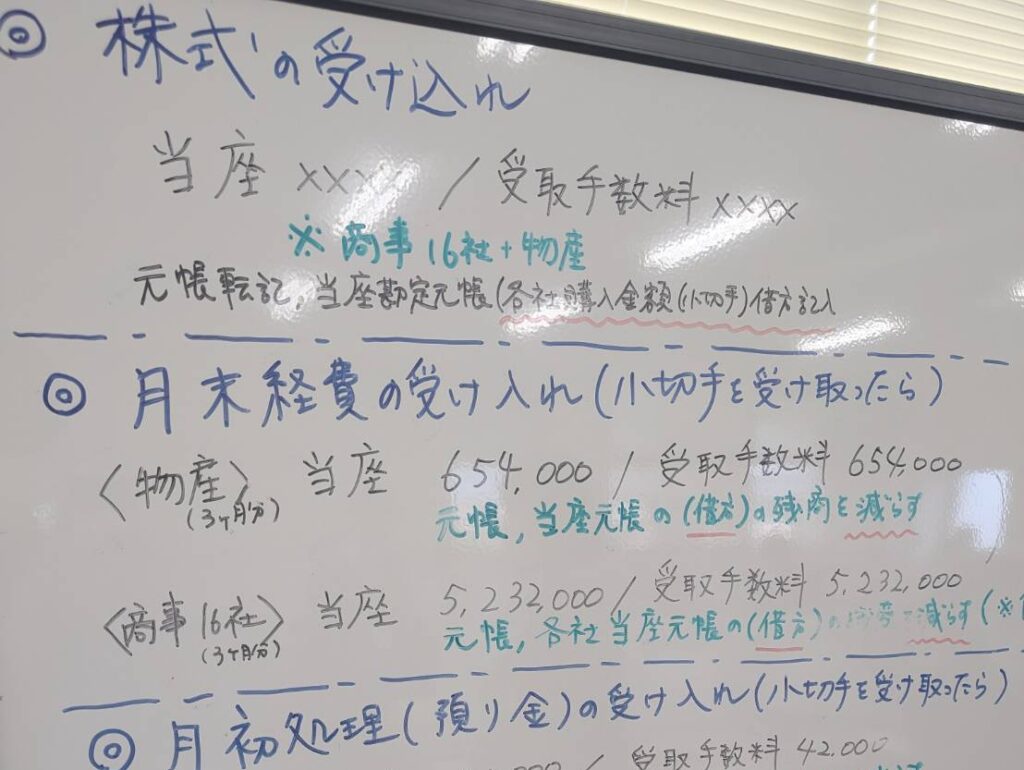 ◎ 株式の受け込れ
当座 xxxx / 受取手数料 xxxx
※ 商事16社+物産
元帳転記, 当座勘定元帳(各社購入金額(小切手)借方記入
◎ 月末経費の受け入れ(小切手を受け取ったら)
〈物産〉 当座 654,000 / 受取手数料 654,000
(3ヶ月分)
元帳, 当座元帳の(借方)の残高を減らす
〈商事16社〉 当座 5,232,000 / 受取手数料 5,232,000
(3ヶ月分)
元帳, 各社当座元帳の(借方)の 減らす(※
◎ 月初処理(預り金)の受け入れ(小切手を受け取ったら)
000 / 受取手数料 42.000